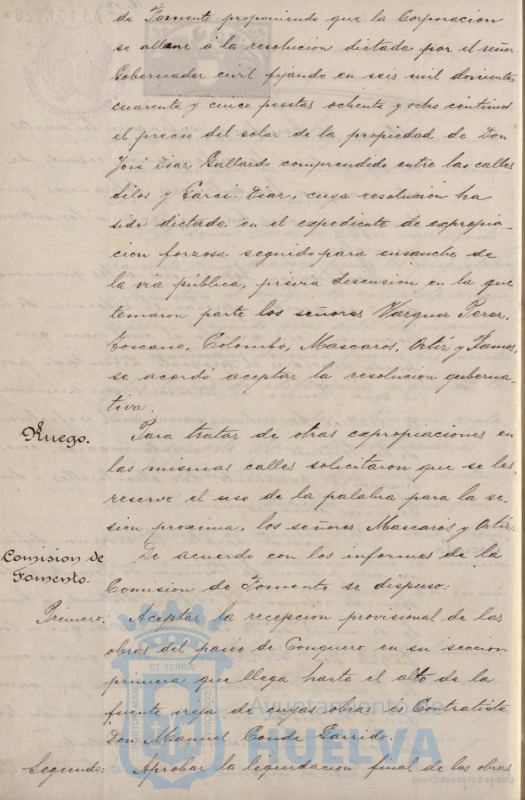 de Fomento proponiendo que la Corporacion
se allane á la resolucion dictada por el señor
Gobernador civil fijando en seis mil doscientas
cuarenta y cinco pesetas ochenta y ocho céntimos
el precio del solar de la propiedad de Don
José Diaz Gallardo comprendido entre las calles
Silos y Garci-Diaz, cuya resolucion ha
sido dictada en el expediente de expropia-
cion forzosa seguido para ensanche de
la via pública, prévia discusion en la que
tomaron parte los señores Vázquez Perez,
Toscano, Colombo, Mascarós, Ortiz y Llamas,
se acordó aceptar la resolucion guberna-
tiva.
Ruego. Para tratar de otras expropiaciones en
las mismas calles solicitaron que se les
reserve el uso de la palabra para la se-
sion proxima, los señores Mascarós y Ortiz.
Comision de Fomento. De acuerdo con los informes de la
Comision de Fomento se dispuso:
Primero: Aceptar la recepcion provisional de las
obras del paseo de Conquero en su seccion
primera que llega hasta el alto de la
fuente vieja de cuyas obras es Contratista
Don Manuel Conde Garrido.
Segundo: Aprobar la liquidacion final de las obras
Ayuntamiento de
HUELVA